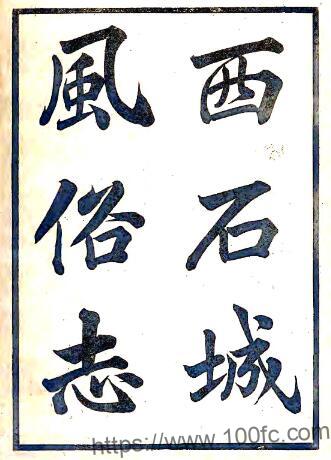 西石城
風俗志
https://www.100fc.com